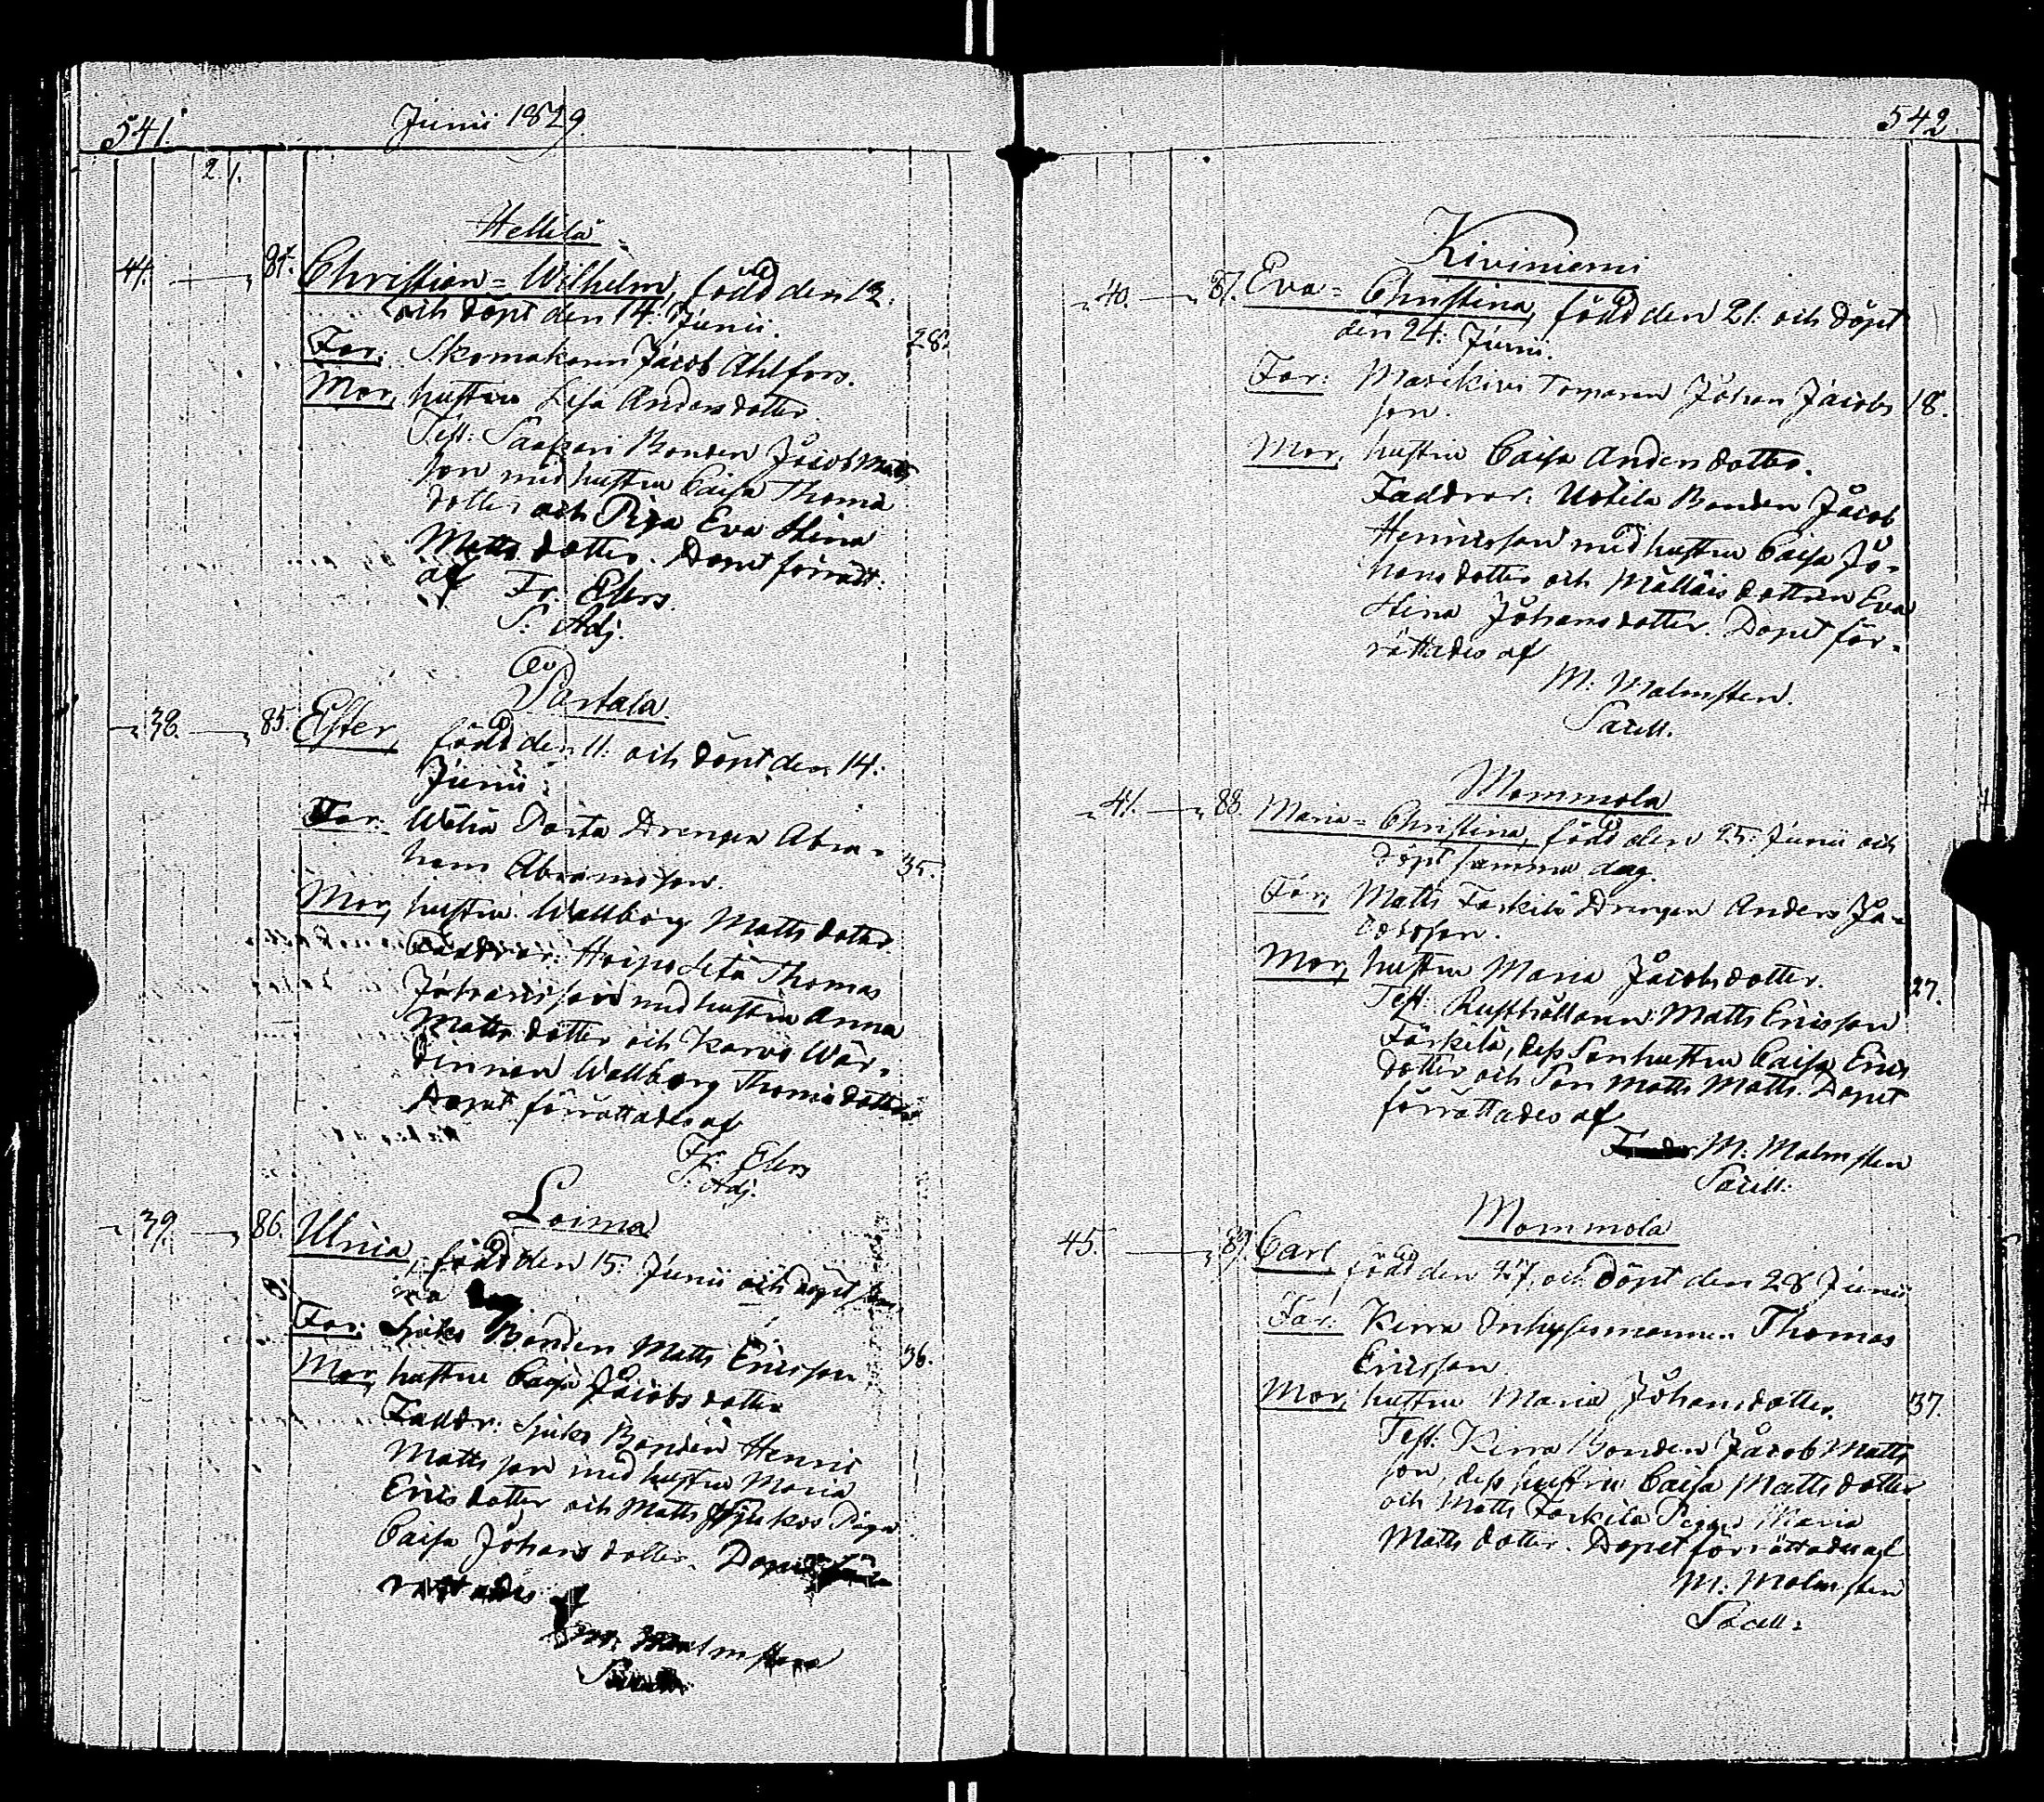 541.
Junii 1829.
21.
Hellilä
44. 84. Christian = Wilhelm, född den 12.
och döpt den 14. Junii.
Far: Skomakaren Jacob Ahlfors. 28.
Mor, hustru Lisa Andersdotter.
Test: Bonden Jacob Matts
son med hustru Caisa Thomæ
dotter och Piga Eva Stina
Matts dotter. Dopet förrätt:
af Fr. Elers.
S: Adj.
Partala
38. 85. Ester, född den 11. och döpt den 14.
Junii.
Far: Drengen Abra-
ham Abramsson. 35.
Mor, hustru Wallborg Matts dotter
Faddrar: Thomas
Johansson med hustru Anna
Matts dotter och Karvo Wär-
dinnan Wallborg Thomædotter
Dopet förrättades af
Fr. Elers
S. Adj.
Loima
39. 86. Ulrica, född den 15. Junii och döpt
ma dag
Far: Sjuko Bonden Matts Ericsson 36.
Mor, hustru Caisa Jacobs dotter
Faddr: Sjuko Bonden Henric
Matts son med hustru Maria
Erics dotter och Matts Sjukos Piga
Caisa Johans dotter. Dopet för-
rättades af
M. Malmsten
Sacell.
542.
Kiviniemi
40. 87. Eva = Christina, född den 21. och döpt
den 24. Junii.
Far: Torparen Johan Jacobs 18.
son.
Mor, hustru Caisa Andersdotter.
Faddrar: Uotila Bonden Jacob
Henricsson med hustru Caisa Jo-
hans dotter och dottren Eva
Stina Johansdotter. Dopet för-
rättades af
M: Malmsten.
Sacell.
Mommola
41. 88. Maria = Christina, född den 25. Junii och
döpt samma dag.
Far, Matts Farkila Drengen Anders Ja-
cobsson.
Mor, hustru Maria Jacobsdotter. 27.
Test: Rusthållaren Matts Ericsson
Farkila, dess Sonhustru Caisa Erics
dotter och Son Matts Matts. Dopet
förrättades af
M. Malmsten
Sacell.
Mommola
45. 89. Carl, född den 27. och döpt den 28 Junii
Far: Kirra Inhysesmannen Thomas
Ericsson.
Mor, hustru Maria Johansdotter. 37.
Test: Kirra Bonden Jacob Matts
son, dess hustru Caisa Matts dotter
och Matts Farkila Pigan Maria
Matts dotter. Dopet förrättades af
M. Malmsten
Sacell.